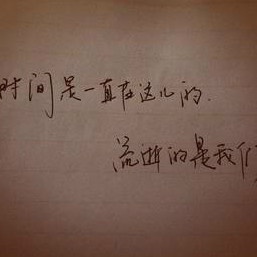 时间是一直在这儿的.
流逝的是我们